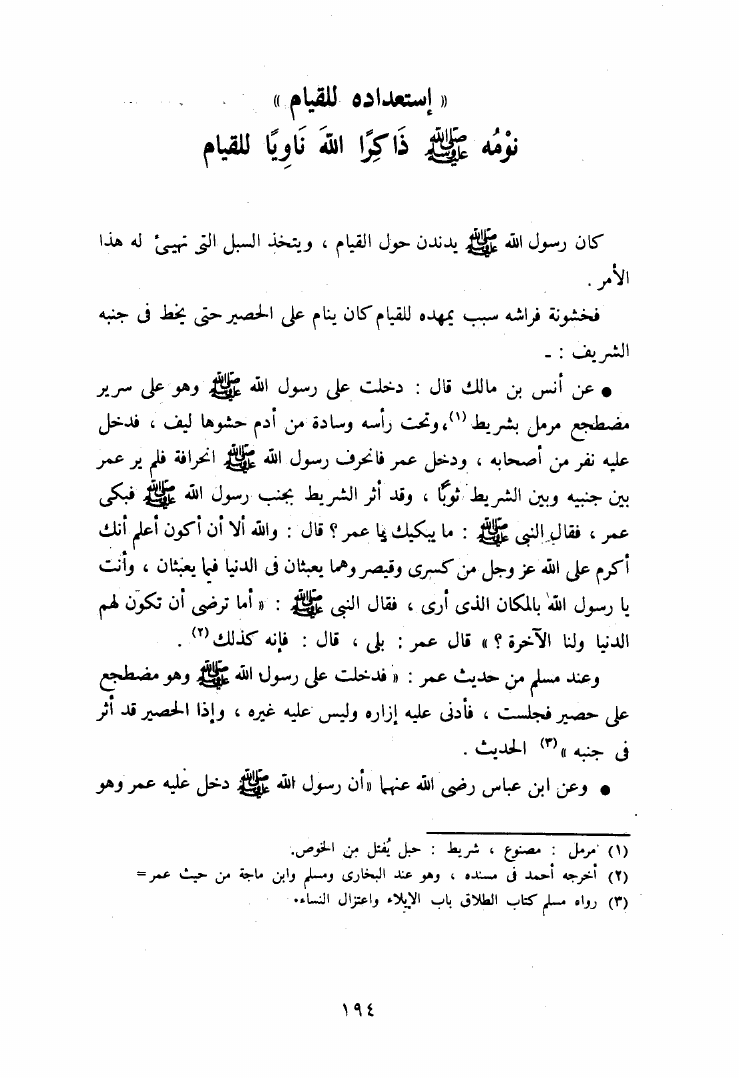 « إستعداده للقيام »
نَوْمُه ﷺ ذَاكِرًا اللهَ نَاوِيًا للقيام
كان رسول الله ﷺ يدندن حول القيام ، ويتخذ السبل التى تهيئ له هذا
الأمر .
فخشونة فراشه سبب يمهده للقيام كان ينام على الحصير حتى يخط فى جنبه
الشريف : ـ
• عن أنس بن مالك قال : دخلت على رسول الله ﷺ وهو على سرير
مضطجع مرمل بشريط (١)، وتحت رأسه وسادة من أدم حشوها ليف ، فدخل
عليه نفر من أصحابه ، ودخل عمر فانحرف رسول الله ﷺ انحرافة فلم ير عمر
بين جنبيه وبين الشريط ثوبًا ، وقد أثر الشريط بجنب رسول الله ﷺ فبكى
عمر ، فقال النبى ﷺ : ما يبكيك يا عمر ؟ قال : والله ألا أن أكون أعلم أنك
أكرم على الله عز وجل من كسرى وقيصر وهما يعبثان فى الدنيا فيما يعبثان ، وأنت
يا رسول الله بالمكان الذى أرى ، فقال النبى ﷺ : « أما ترضى أن تكون لهم
الدنيا ولنا الآخرة ؟ » قال عمر : بلى ، قال : فإنه كذلك (٢) .
وعند مسلم من حديث عمر : « فدخلت على رسول الله ﷺ وهو مضطجع
على حصير فجلست ، فأدنى عليه إزاره وليس عليه غيره ، وإذا الحصير قد أثر
فى جنبه » (٣) الحديث .
• وعن ابن عباس رضى الله عنهما « أن رسول الله ﷺ دخل عليه عمر وهو
(١) مرمل : مصنوع ، شريط : حبل يُفتل من الخوص.
(٢) أخرجه أحمد فى مسنده ، وهو عند البخارى ومسلم وابن ماجة من حيث عمر=
(٣) رواه مسلم كتاب الطلاق باب الإيلاء واعتزال النساء.
١٩٤